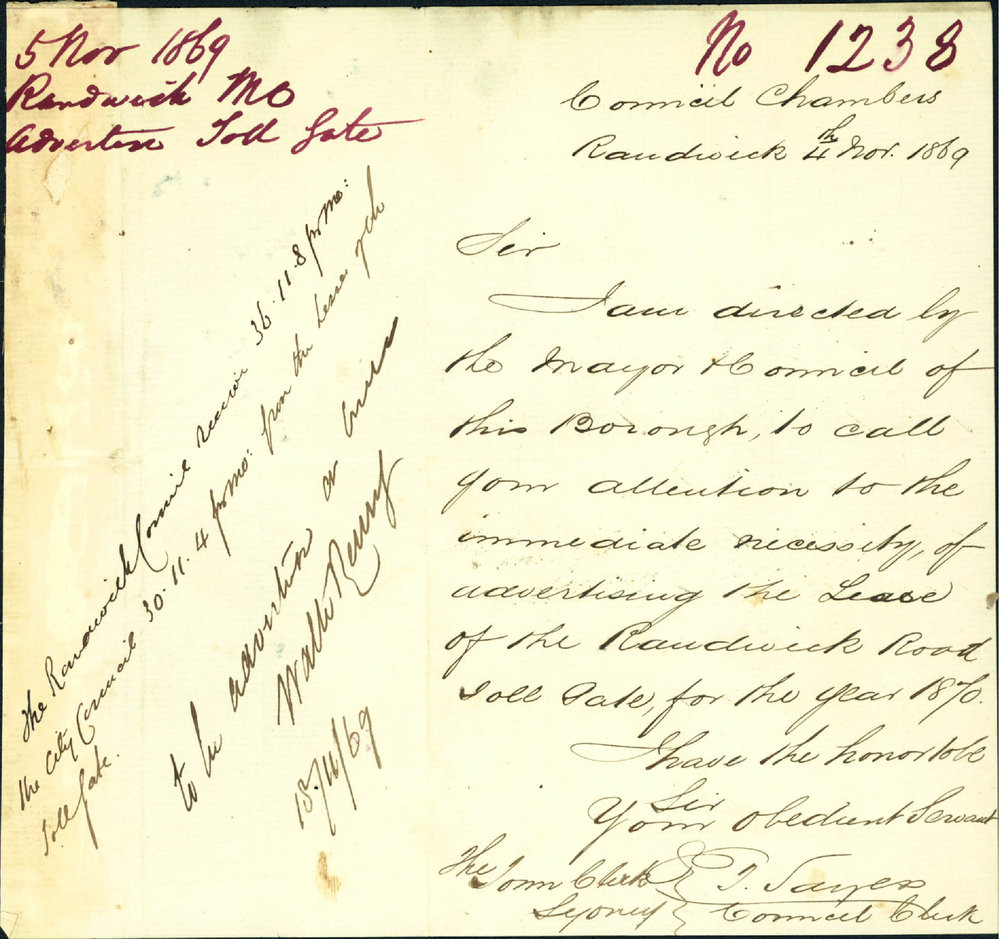 5 Nov 1869
Randwick MC
Advertise Toll Gate
No 1238
Council Chambers
Randwick 4th Nov. 1869
Sir
I am directed by
the Mayor & Council of
this Borough, to call
your attention to the
immediate necessity, of
advertising the Lease
of the Randwick Road
Toll Gate, for the year 1870.
I have the honor to be
Sir
Your Obedient Servant
T. Sayers
Council Clerk
The Town Clerk
Sydney
The Randwick Council receive 36.11.8 pr mo:
the City Council 30.11.4 pr mo: from the Lessee of the
Toll Gate.
to be advertised
Walter Renny
18/11/69